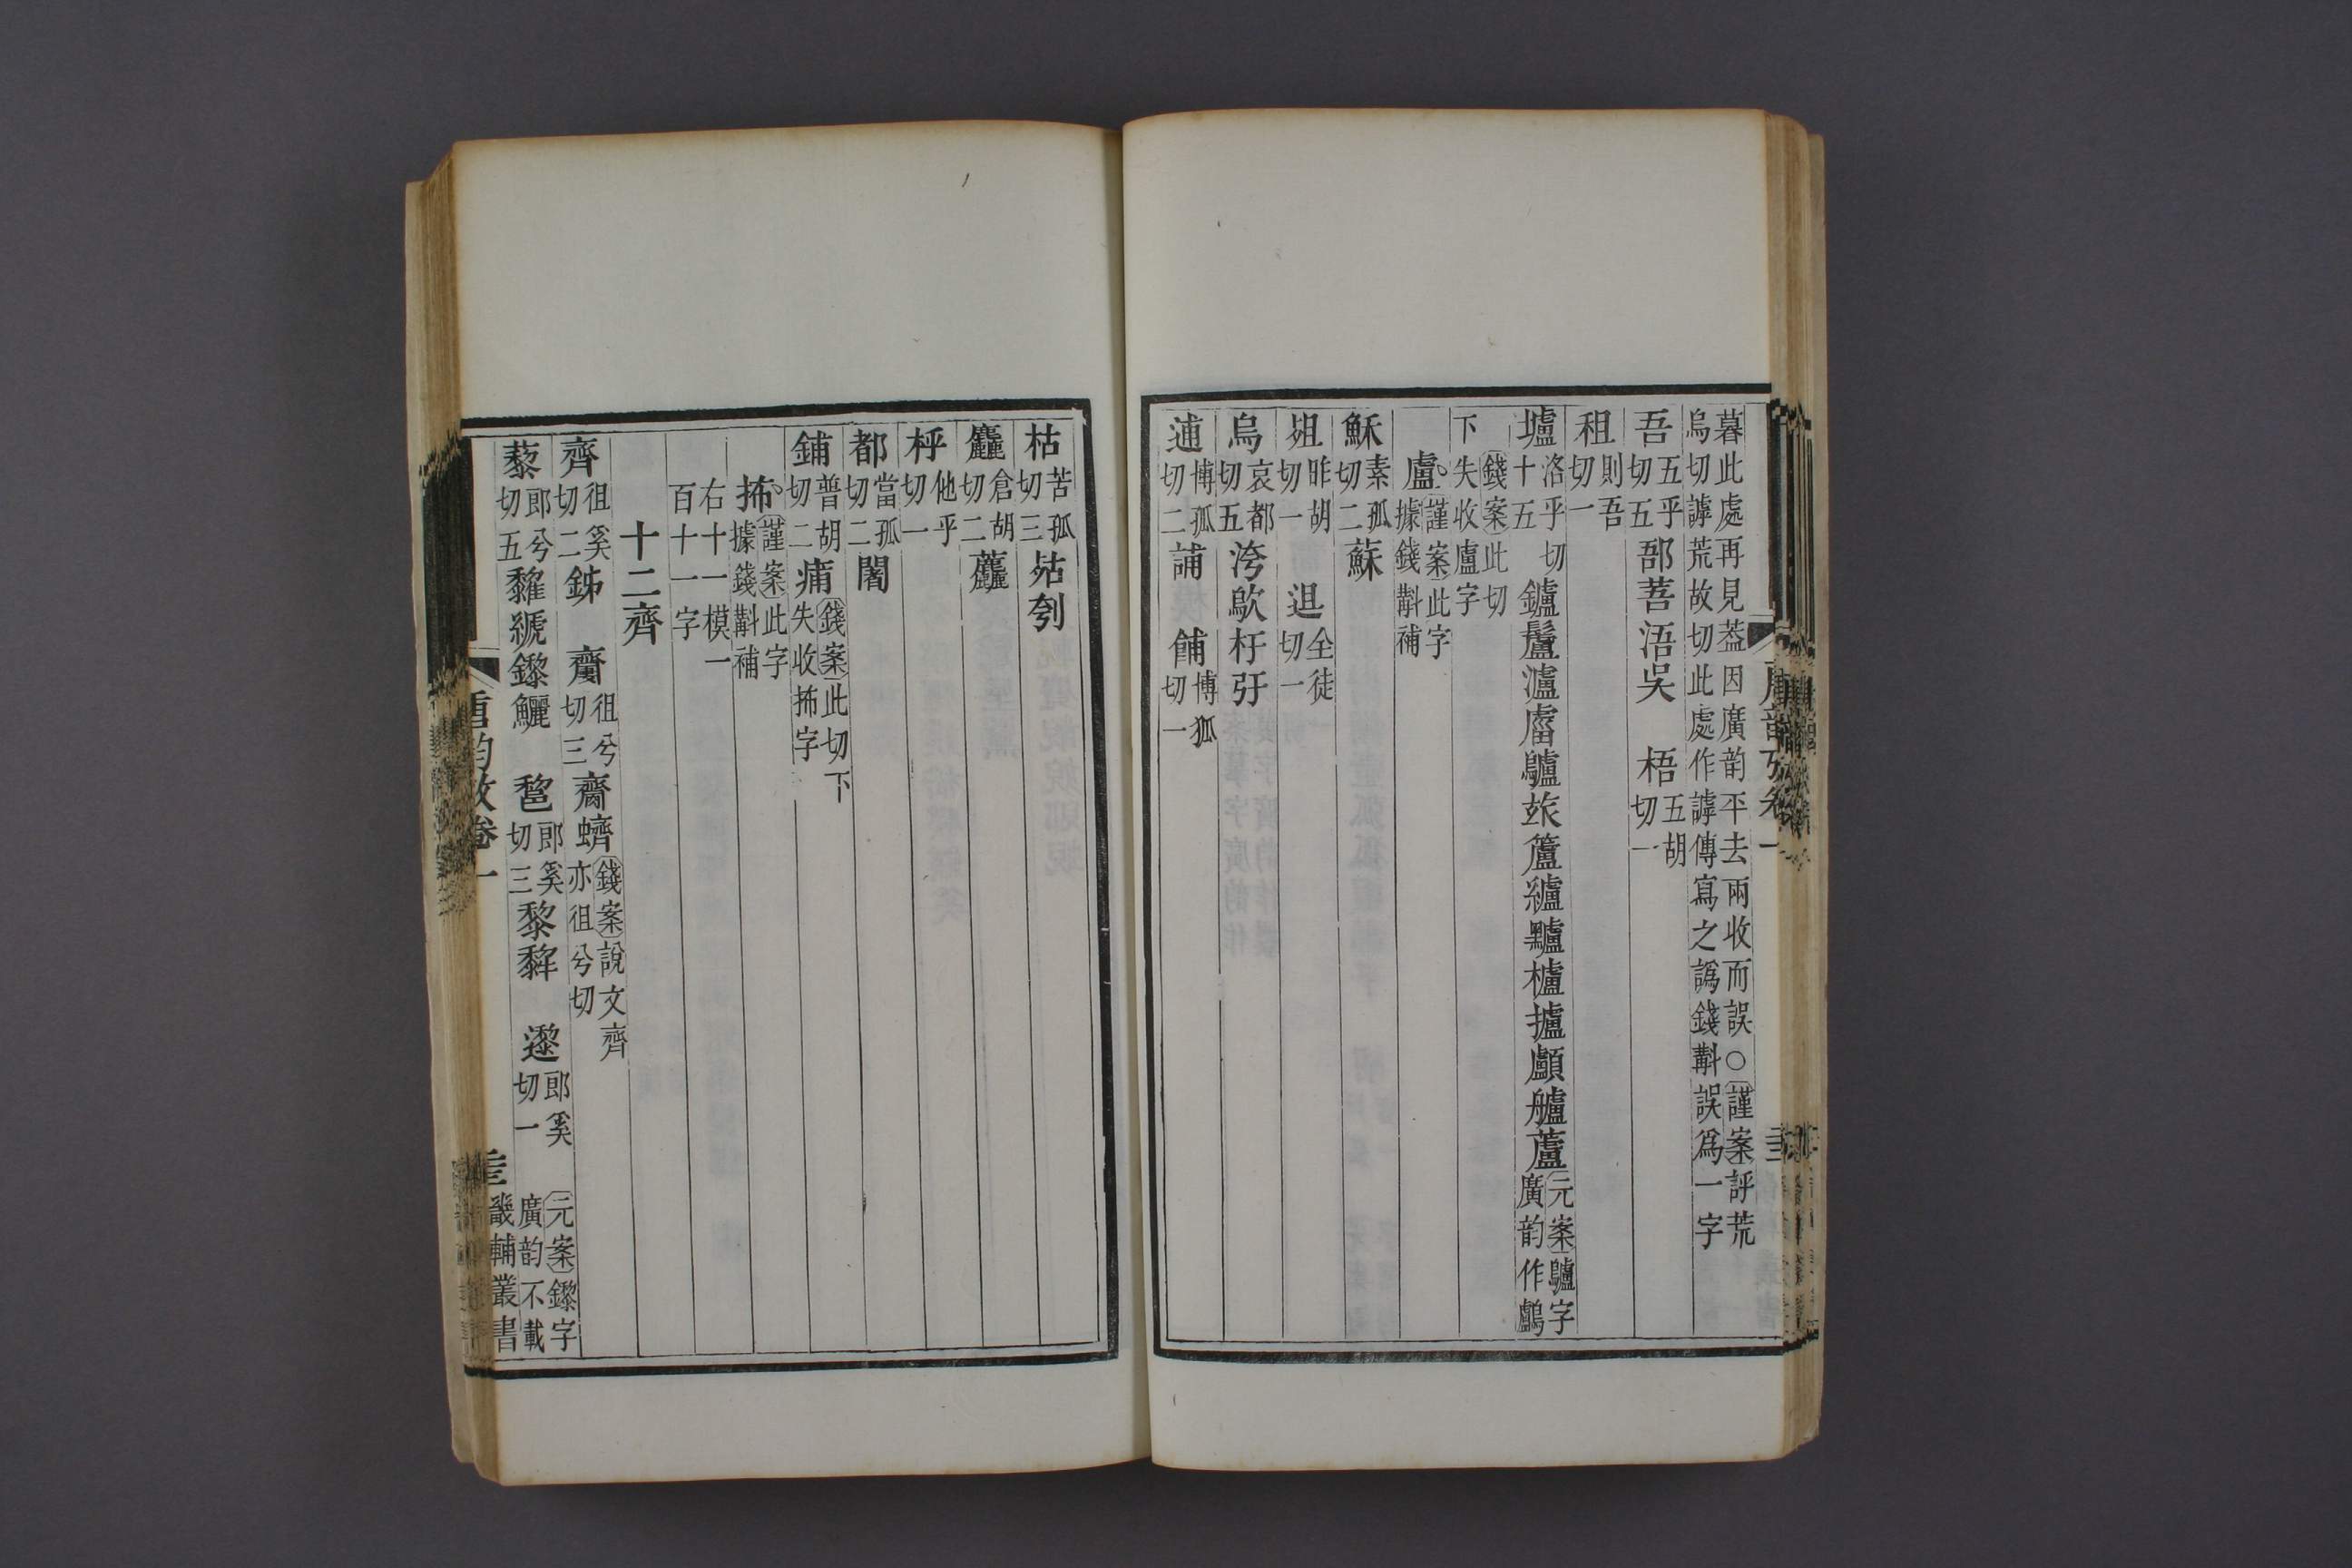 暮此處再見葢因廣韵平去兩收而誤○謹案評荒
烏切謼荒故切此處作謼傳寫之譌錢斠誤爲一字
吾五乎切五郚菩浯吳 梧五胡切一
租則吾切一
壚洛乎切十五鑪鬛瀘廬鸕玈籚纑黸櫨攎顱艫蘆元案鸕字廣韵作鸕
錢案此切下失收盧字
盧謹案此字據錢斠補
穌素孤切二蘇
殂昨胡切一 退全徒切一
烏哀都切五洿歍杇弙
逋博孤切二誧 餔博狐切一
枯苦孤切三殆刳
麤倉胡切二
㭔他乎切一
都當孤切二闍
鋪普胡切二痡錢案此切下失收抪字
抪謹案此字據錢斠補
右十一模一百十一字
十二齊
齊徂奚切二 齎徂兮切三齏蠐錢案說文齊亦徂兮切
藜郎兮切五 郎奚切三黎 邌郎奚切一 元案鑗字廣韵不載
唐韵攷卷一
畿輔叢書